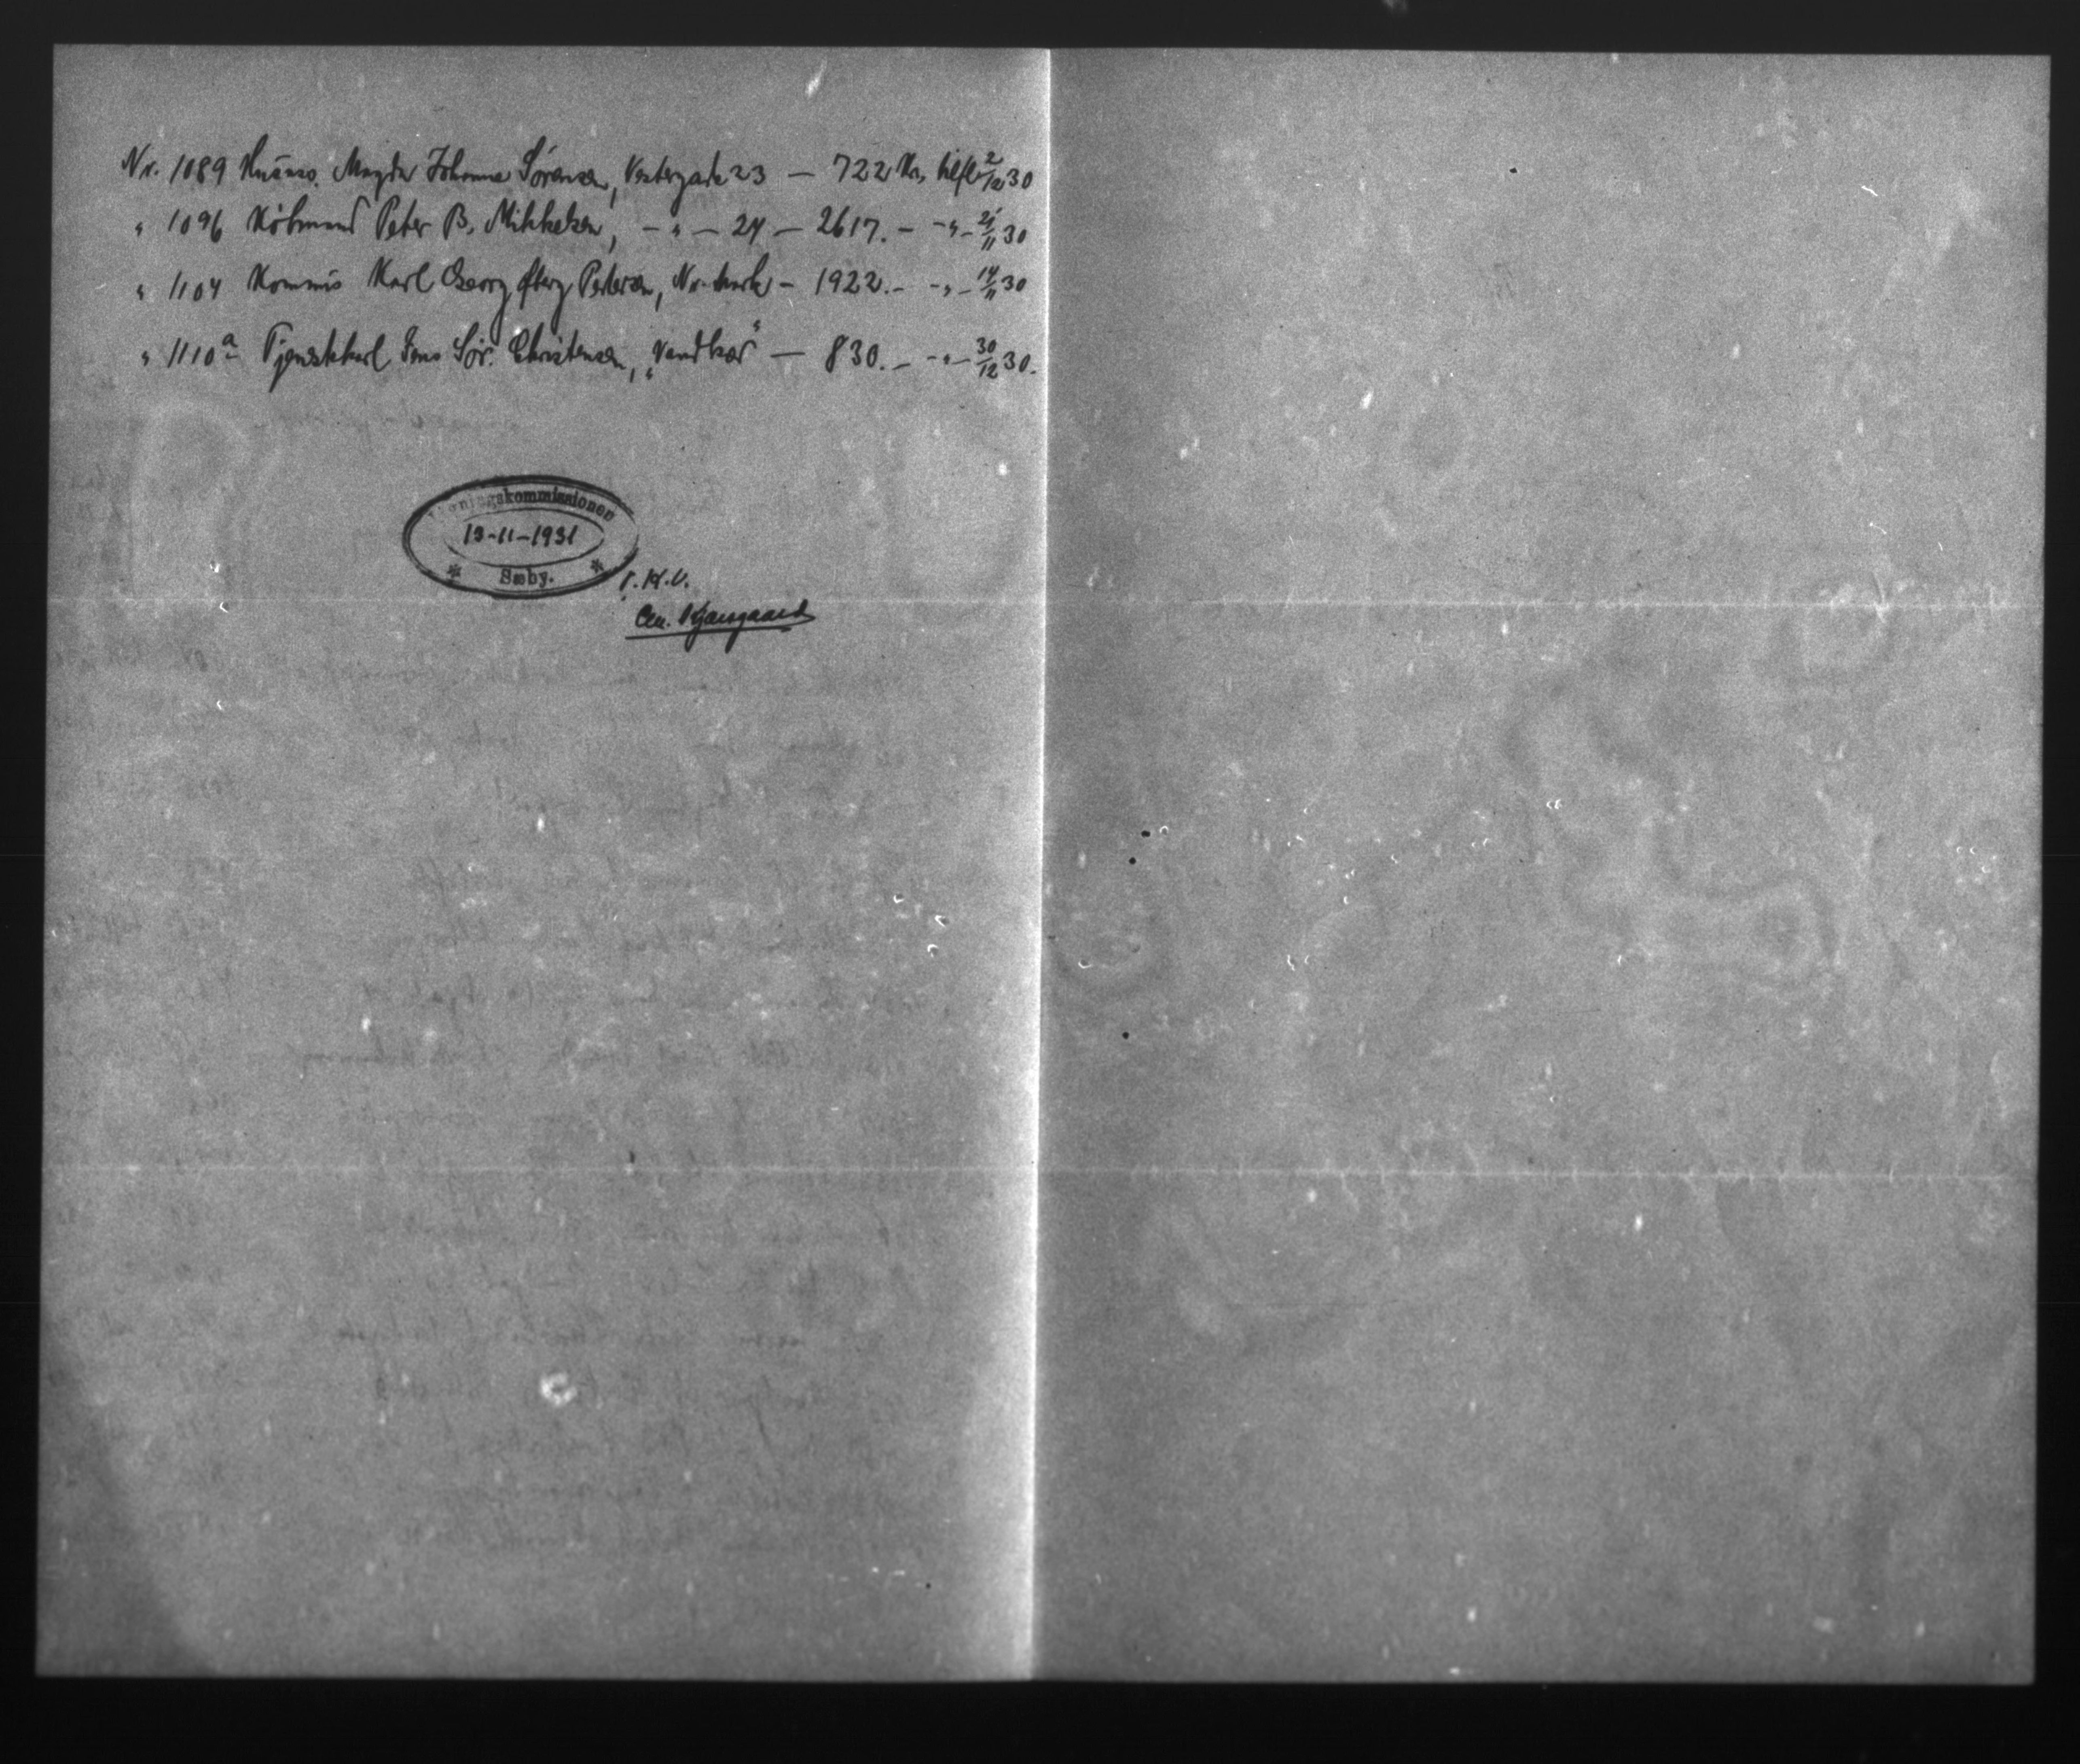 Nr. 1089 Husass. Magda Johanne Sørensen, Vestergade 23 — 722 Kr. tilfl. 2/12 30
" 1096 Købmand Peter B. Mikkelsen, — " — 24 — 2617. — - " - 21/11 30
" 1104 Kommis Karl Georg Pedersen, Nr. — 1922. — - " - 14/11 30
" 1110a Tjenestekarl Jens Sør. Christensen, „Vandkær" — 830. — - " - 30/12 30.
Ligningskommissionen
13-11-1931
* Sæby. *
P. K. V.
Chr. Kjærsgaard